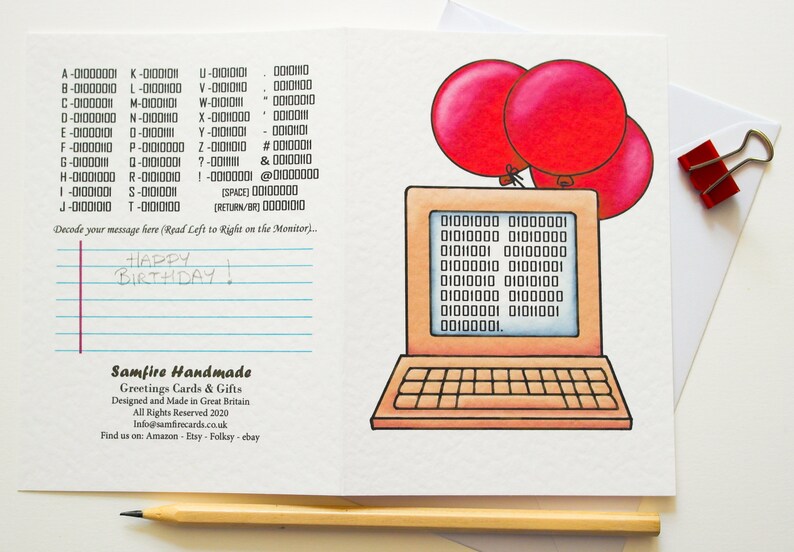 A -01000001 K -01001011 U -01010101 . 00101110
B -01000010 L -01001100 V -01010110 , 00101100
C -01000011 M -01001101 W-01010111 " 00100010
D -01000100 N -01001110 X -01011000 ' 00100111
E -01000101 O -01001111 Y -01011001 - 00101101
F -01000110 P -01010000 Z -01011010 # 00100011
G -01000111 Q -01010001 ? -00111111 & 00100110
H -01001000 R -01010010 ! -00100001 @01000000
I -01001001 S -01010011 [SPACE] 00100000
J -01001010 T -01010100 [RETURN/BR] 00001010
Decode your message here (Read Left to Right on the Monitor)...
HAPPY
BIRTHDAY !
Samfire Handmade
Greetings Cards & Gifts
Designed and Made in Great Britain
All Rights Reserved 2020
Info@samfirecards.co.uk
Find us on: Amazon - Etsy - Folksy - ebay
01001000 01000001
01010000 01010000
01011001 00100000
01000010 01001001
01010010 01010100
01001000 01000100
01000001 01011001
00100001.